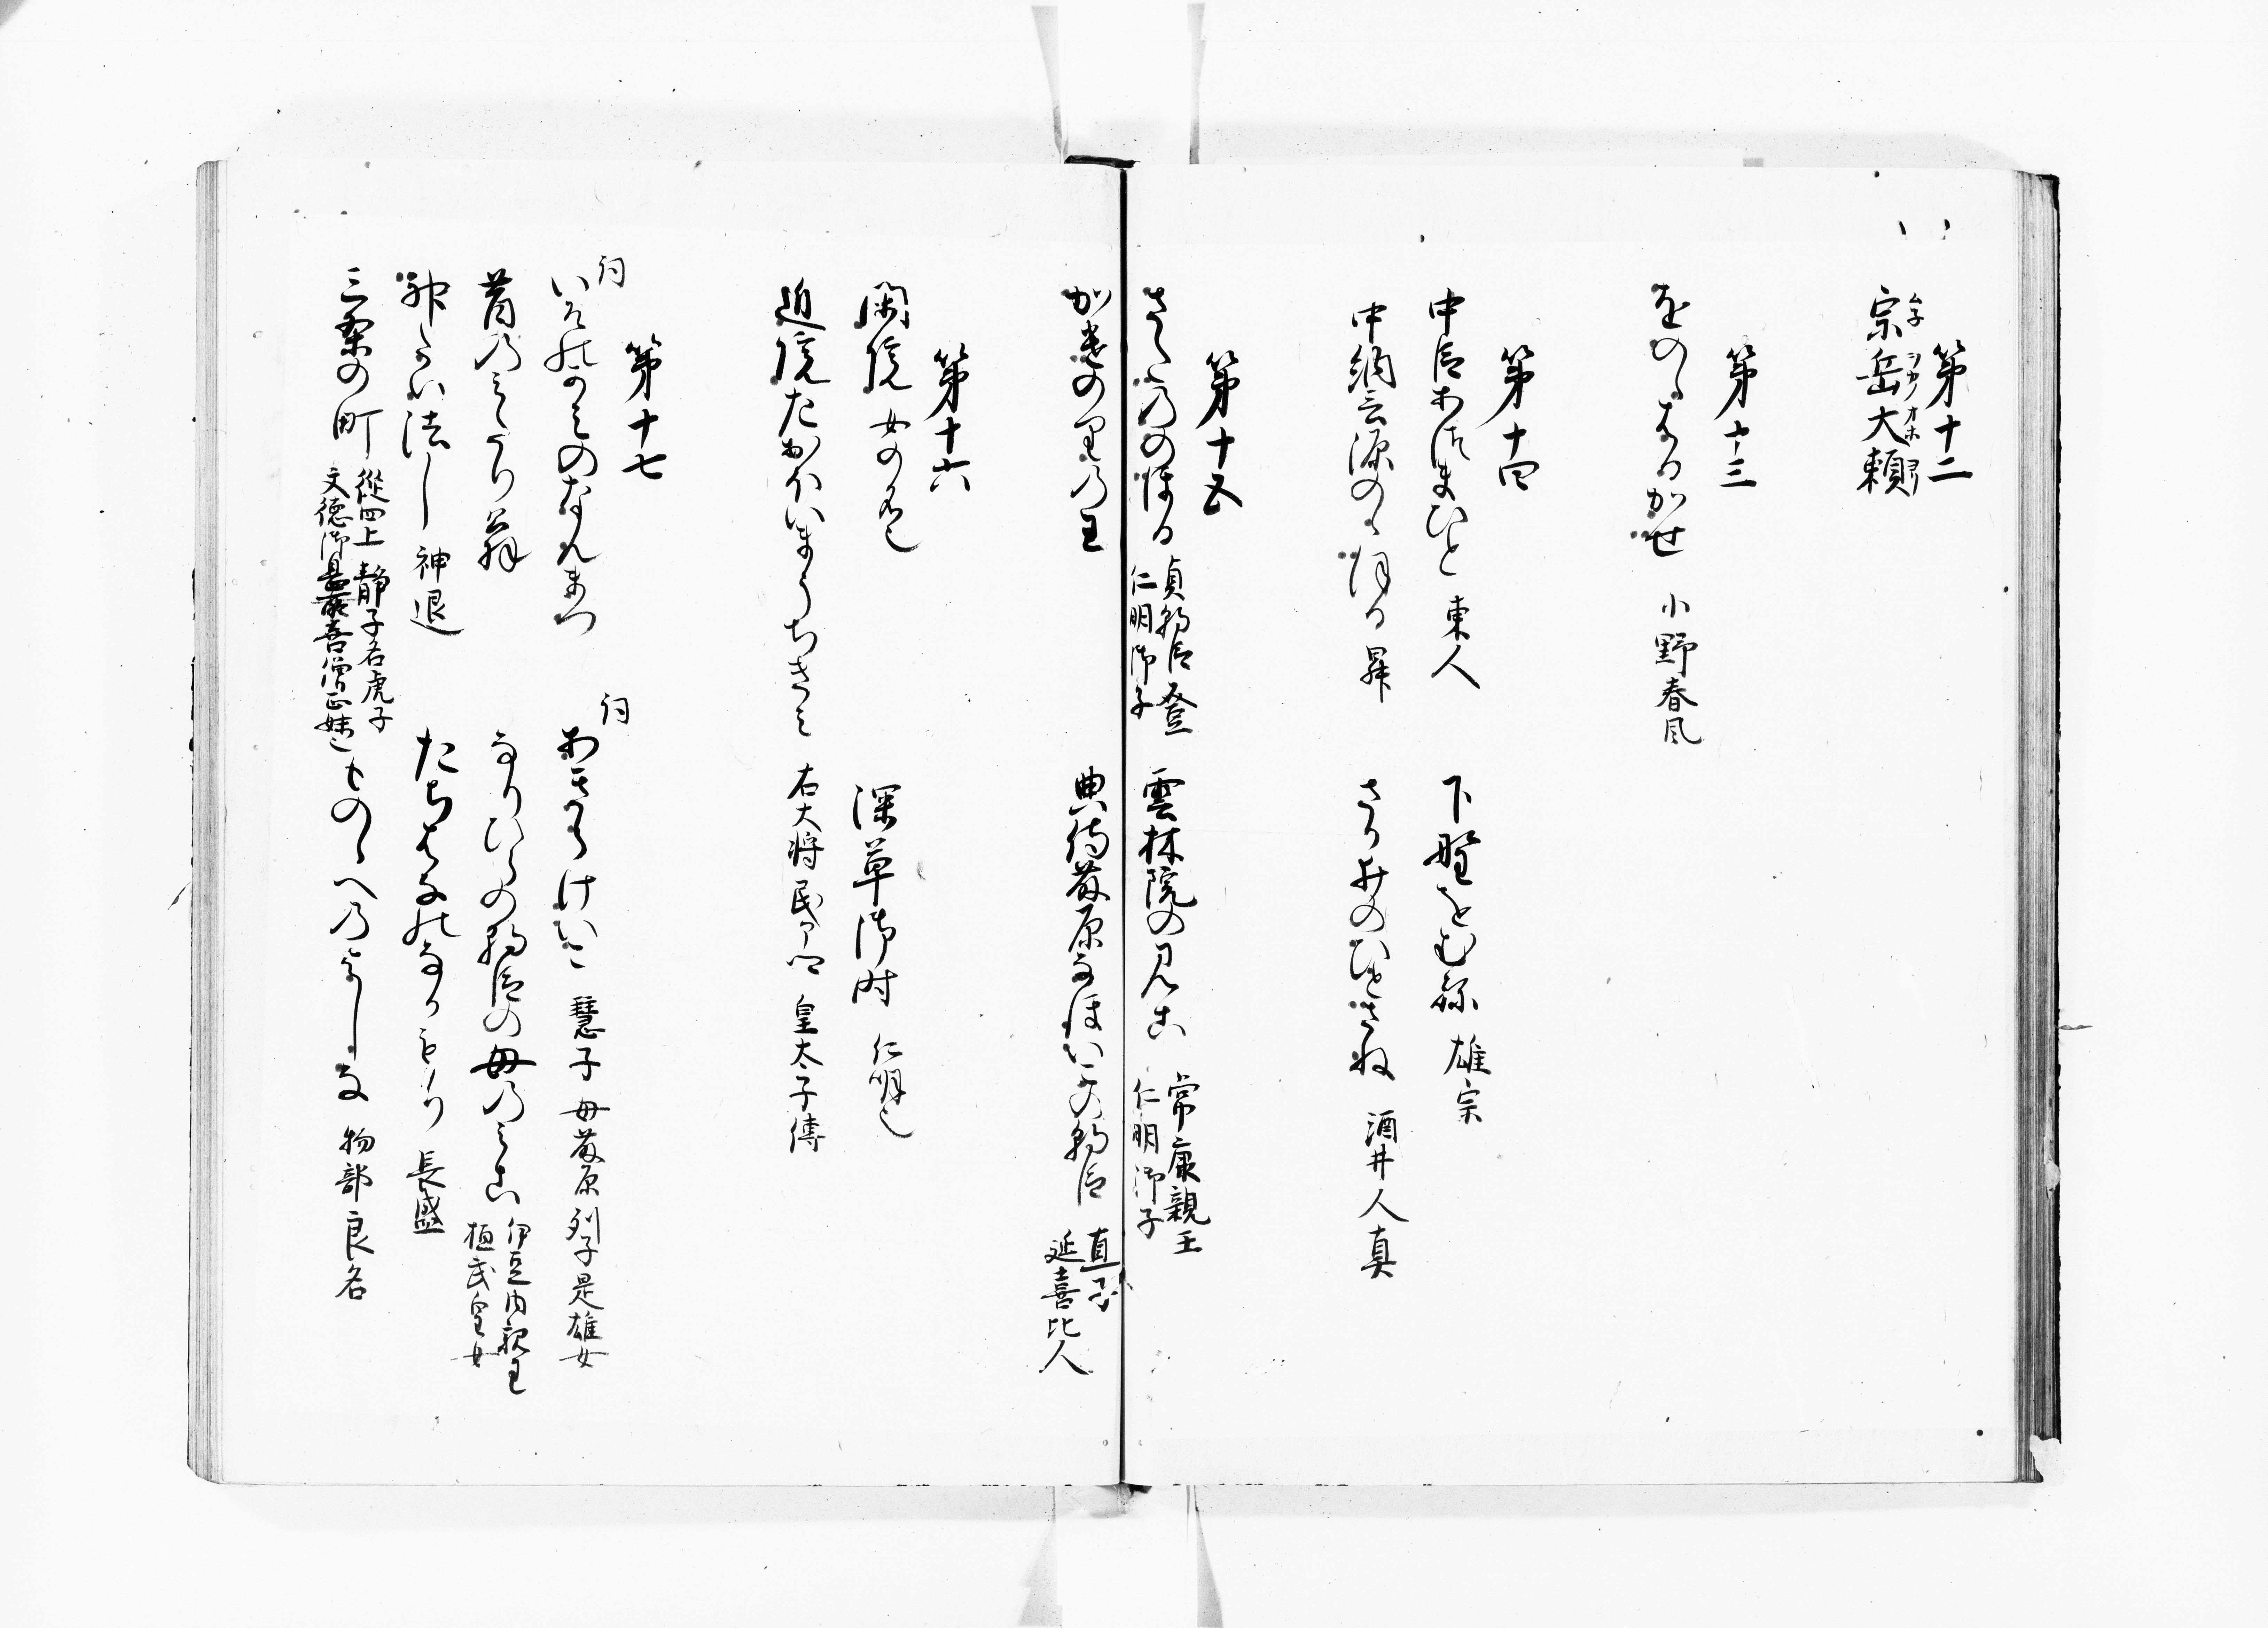 第十二
宗岳大頼
第十三
をのゝはるかせ 小野春風
第十四
中臣あつまひと 東人 下野をむね 雄宗
中納言源のゝほる 昇 さかゐのひとさね 酒井人真
第十五
さたのゝほる 貞朝臣登 仁明御子 雲林院の見こ 常康親王 仁明御子
かけのりの王 典侍藤原なほいこの朝臣 直子 延喜比人
第十六
閑院 女の名也 深草御時 仁明也
近院たるかいまうちきミ 右大将 民ア卿 皇太子傅
第十七
いそのかミのなんまつ あきらけいこ 慧子 母藤原列子是雄女
なりひらの朝臣の母のミこ 伊豆内親王 桓武皇女
神たい法し 神退 たちはなのなかもり 長盛
三条の町 従四上 静子名虎子 文徳御 喜僧正妹也 ものゝへのよしな 物部良名